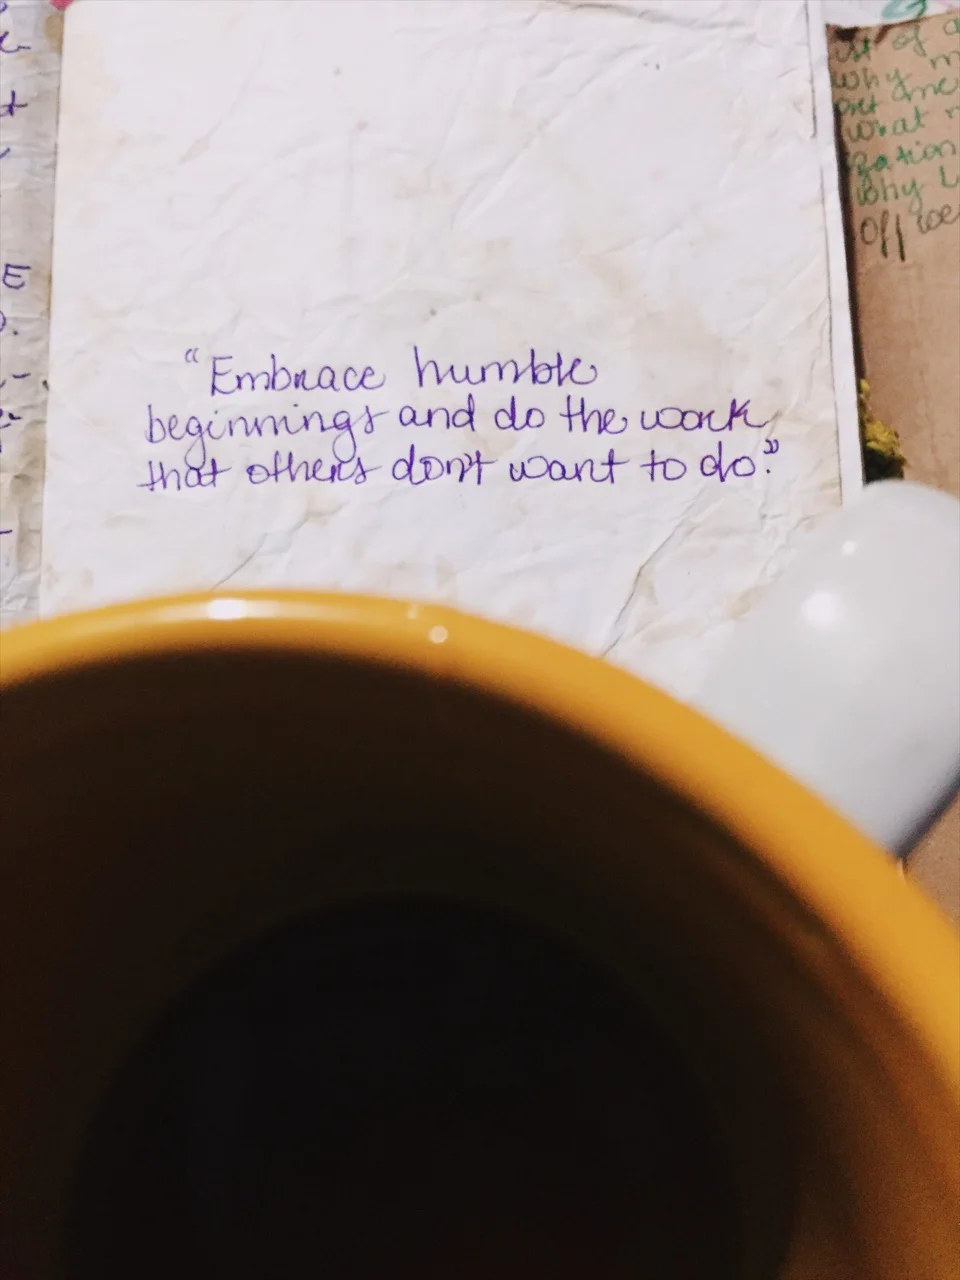 “Embrace humble
beginnings and do the work
that others don't want to do.”
of a
why
me
what
why
Off